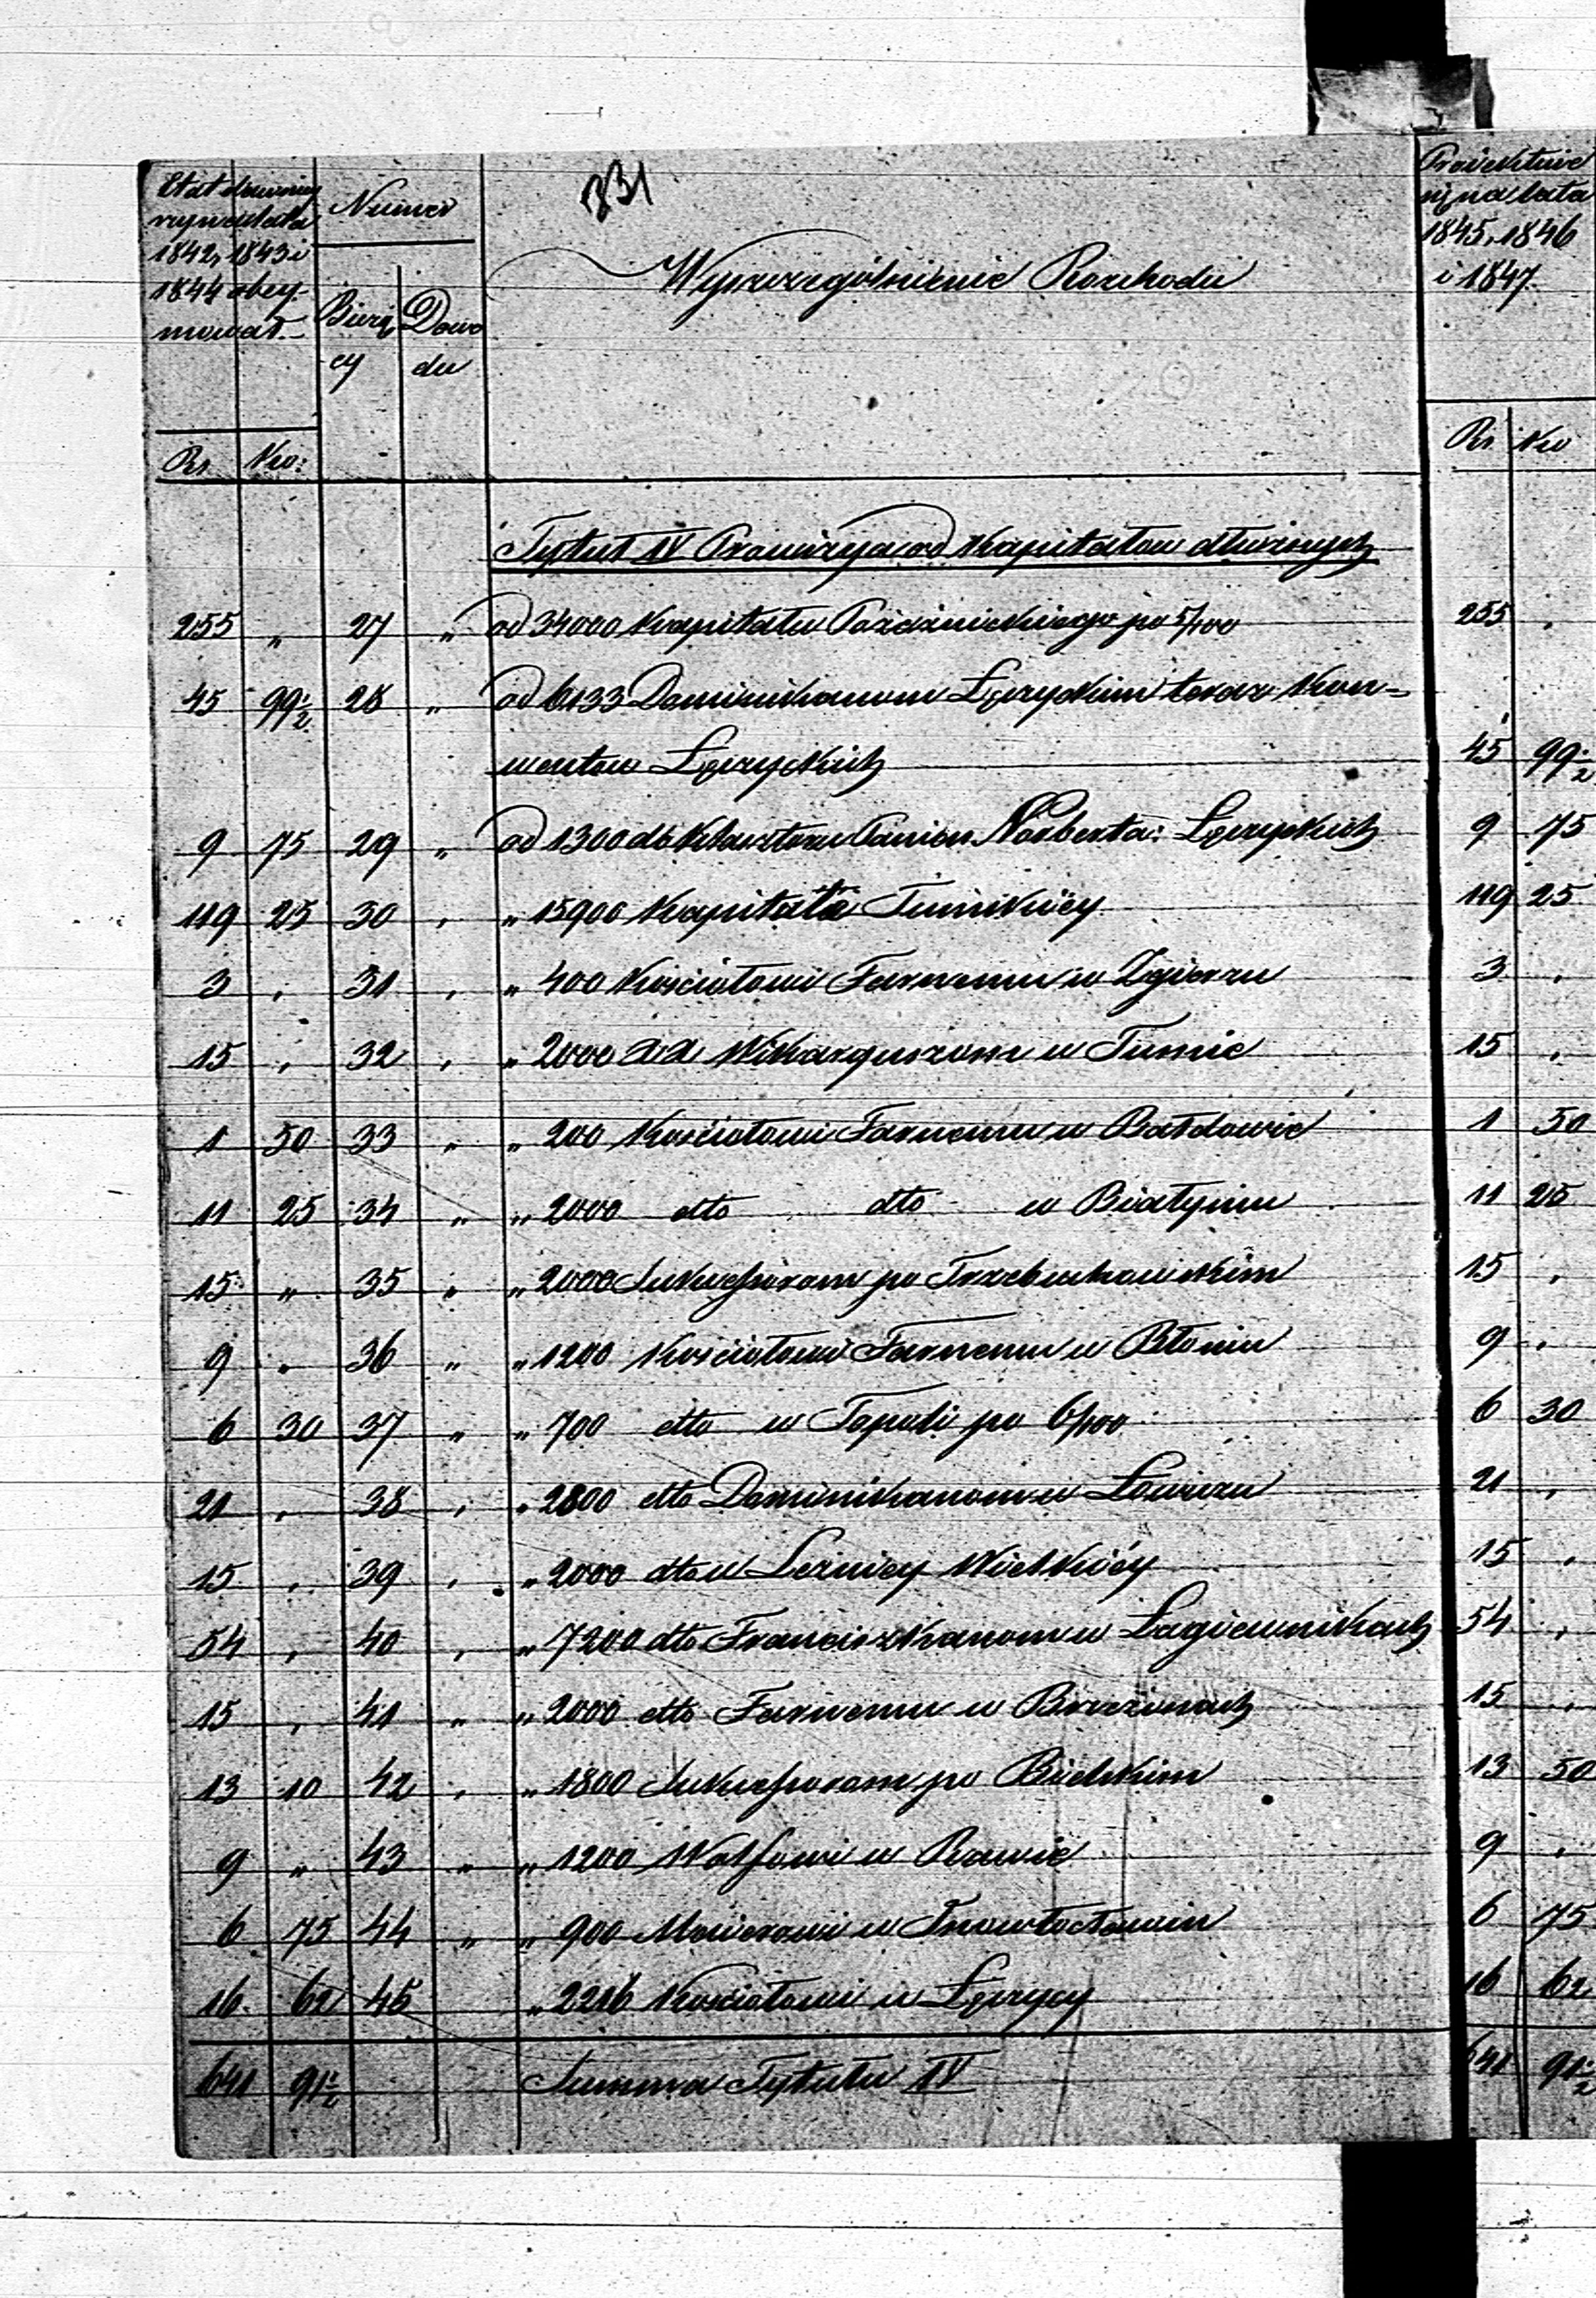 331
Etat dawniej
rzy na lata
1842, 1843 i
1844 obey-
mował.
Numer
Bieżą
cy
Dowo
du
Wyszczególnienie Rozchodu
Projektuje
się na lata
1845, 1846
i 1847.
Rs Ko: Rs Ko
Tytuł IV Prowizya od Kapitałów dłużnych
255 " 27 " od 34000 Kapitału po 5/100 255 "
45 99½ 28 " od 6133 Dominikanom Łęczyckim teraz Kon-
wentow Łęczyckich 45 99½
9 75 29 " od 1300 do Klasztoru Panien Norberta: Łęczyckich 9 75
119 25 30 " " 15900 Kapitule Tumskiéy 119 25
3 " 31 " " 400 Kościołowi Farnemu w Zgierzu 3 "
15 " 32 " " 2000 XX Wikaryuszom w Tumie 15 "
1 50 33 " " 200 Kościołowi Farnemu w Bałdowie 1 50
11 25 34 " " 2000 dto dto w Białyniu 11 25
15 " 35 " " 2000 Sukcessorom po Trzebuchowskim 15 "
9 " 36 " " 1200 Kościołowi Farnemu w Błoniu 9 "
6 30 37 " " 700 dto w Topoli po 6/100 6 30
21 " 38 " " 2800 dto Dominikanom w Łowiczu 21 "
15 " 39 " " 2000 dto w Leźnicy Wielkiéy 15 "
54 " 40 " " 7200 dto Franciszkanom w Łagiewnikach 54 "
15 " 41 " " 2000 dto Farnemu w Brzezinach 15 "
13 10 42 " " 1800 Sukcessorom po Bielskim 13 50
9 " 43 " " 1200 Wolfowi w Rawie 9 "
6 75 44 " " 900 w Inowłodzu 6 75
16 62 45 " 2216 Kościołowi w Łęczycy 16 62
641 91½ Summa Tytułu IV 641 91½